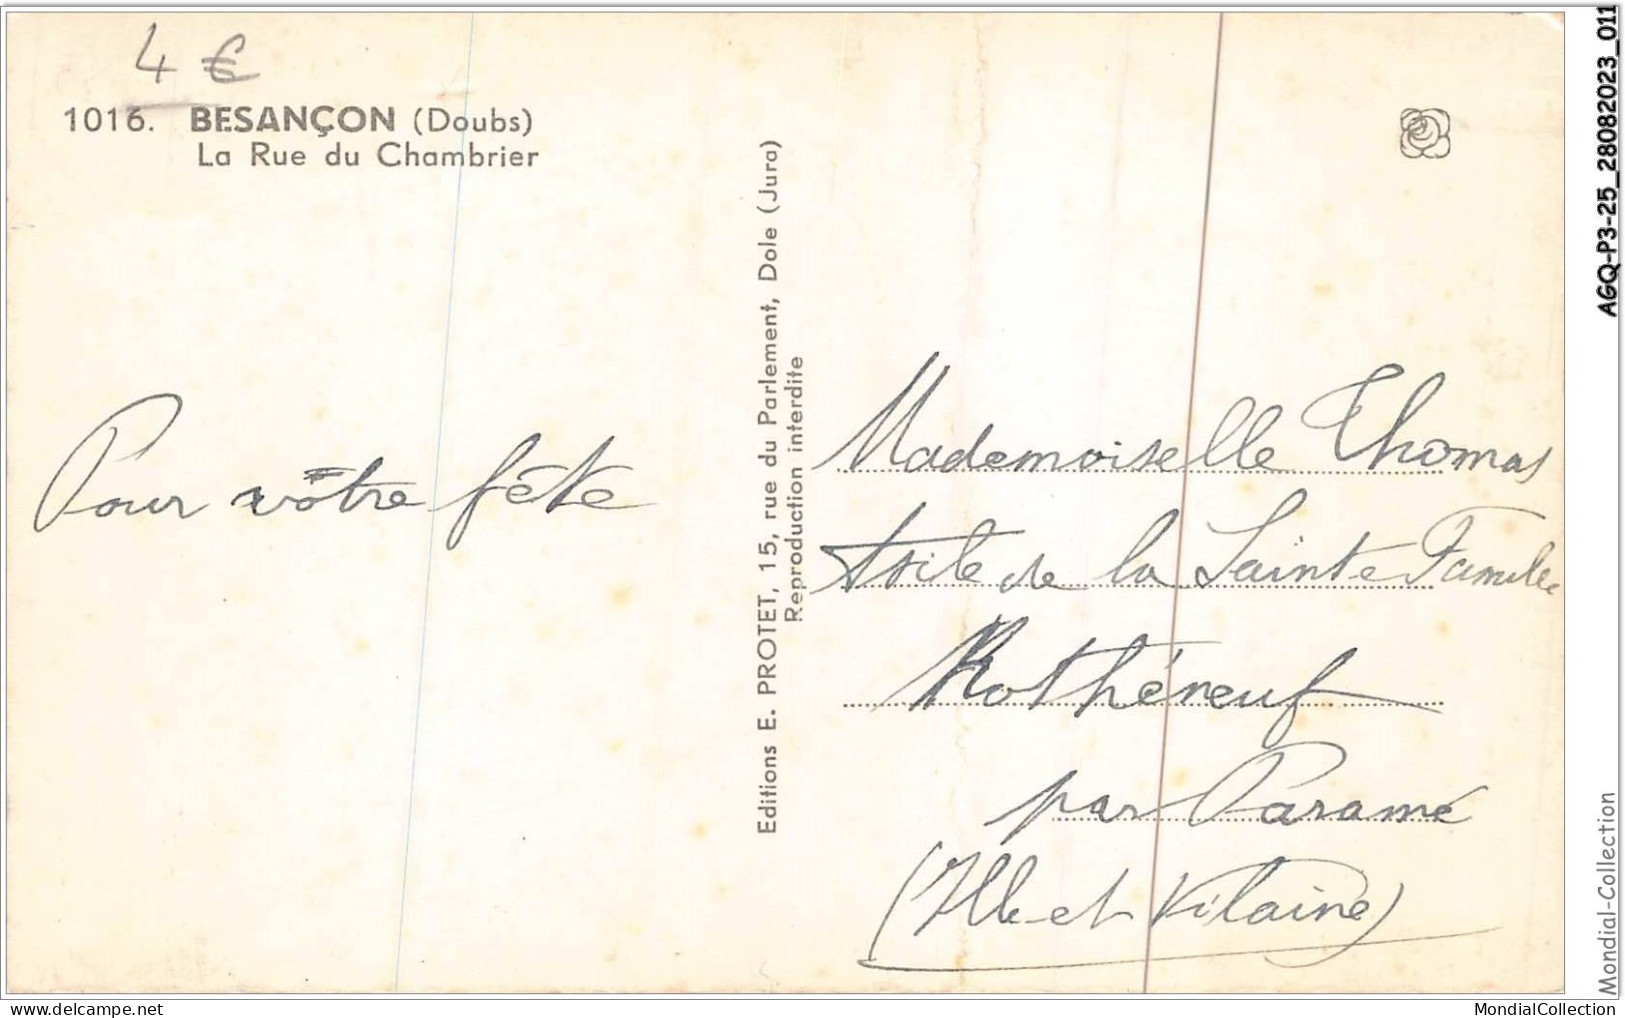 4 €
1016. BESANÇON (Doubs)
La Rue du Chambrier
Pour vôtre fête
Editions E. PROTET, 15, rue du Parlement, Dole (Jura)
Reproduction interdite
Mademoiselle Thomas
Asile de la Sainte Famille
Rothéneuf
par Paramé
(Ille-et Vilaine)
AGQ-P3-25_28082023_011
Mondial-Collection
MondialCollection